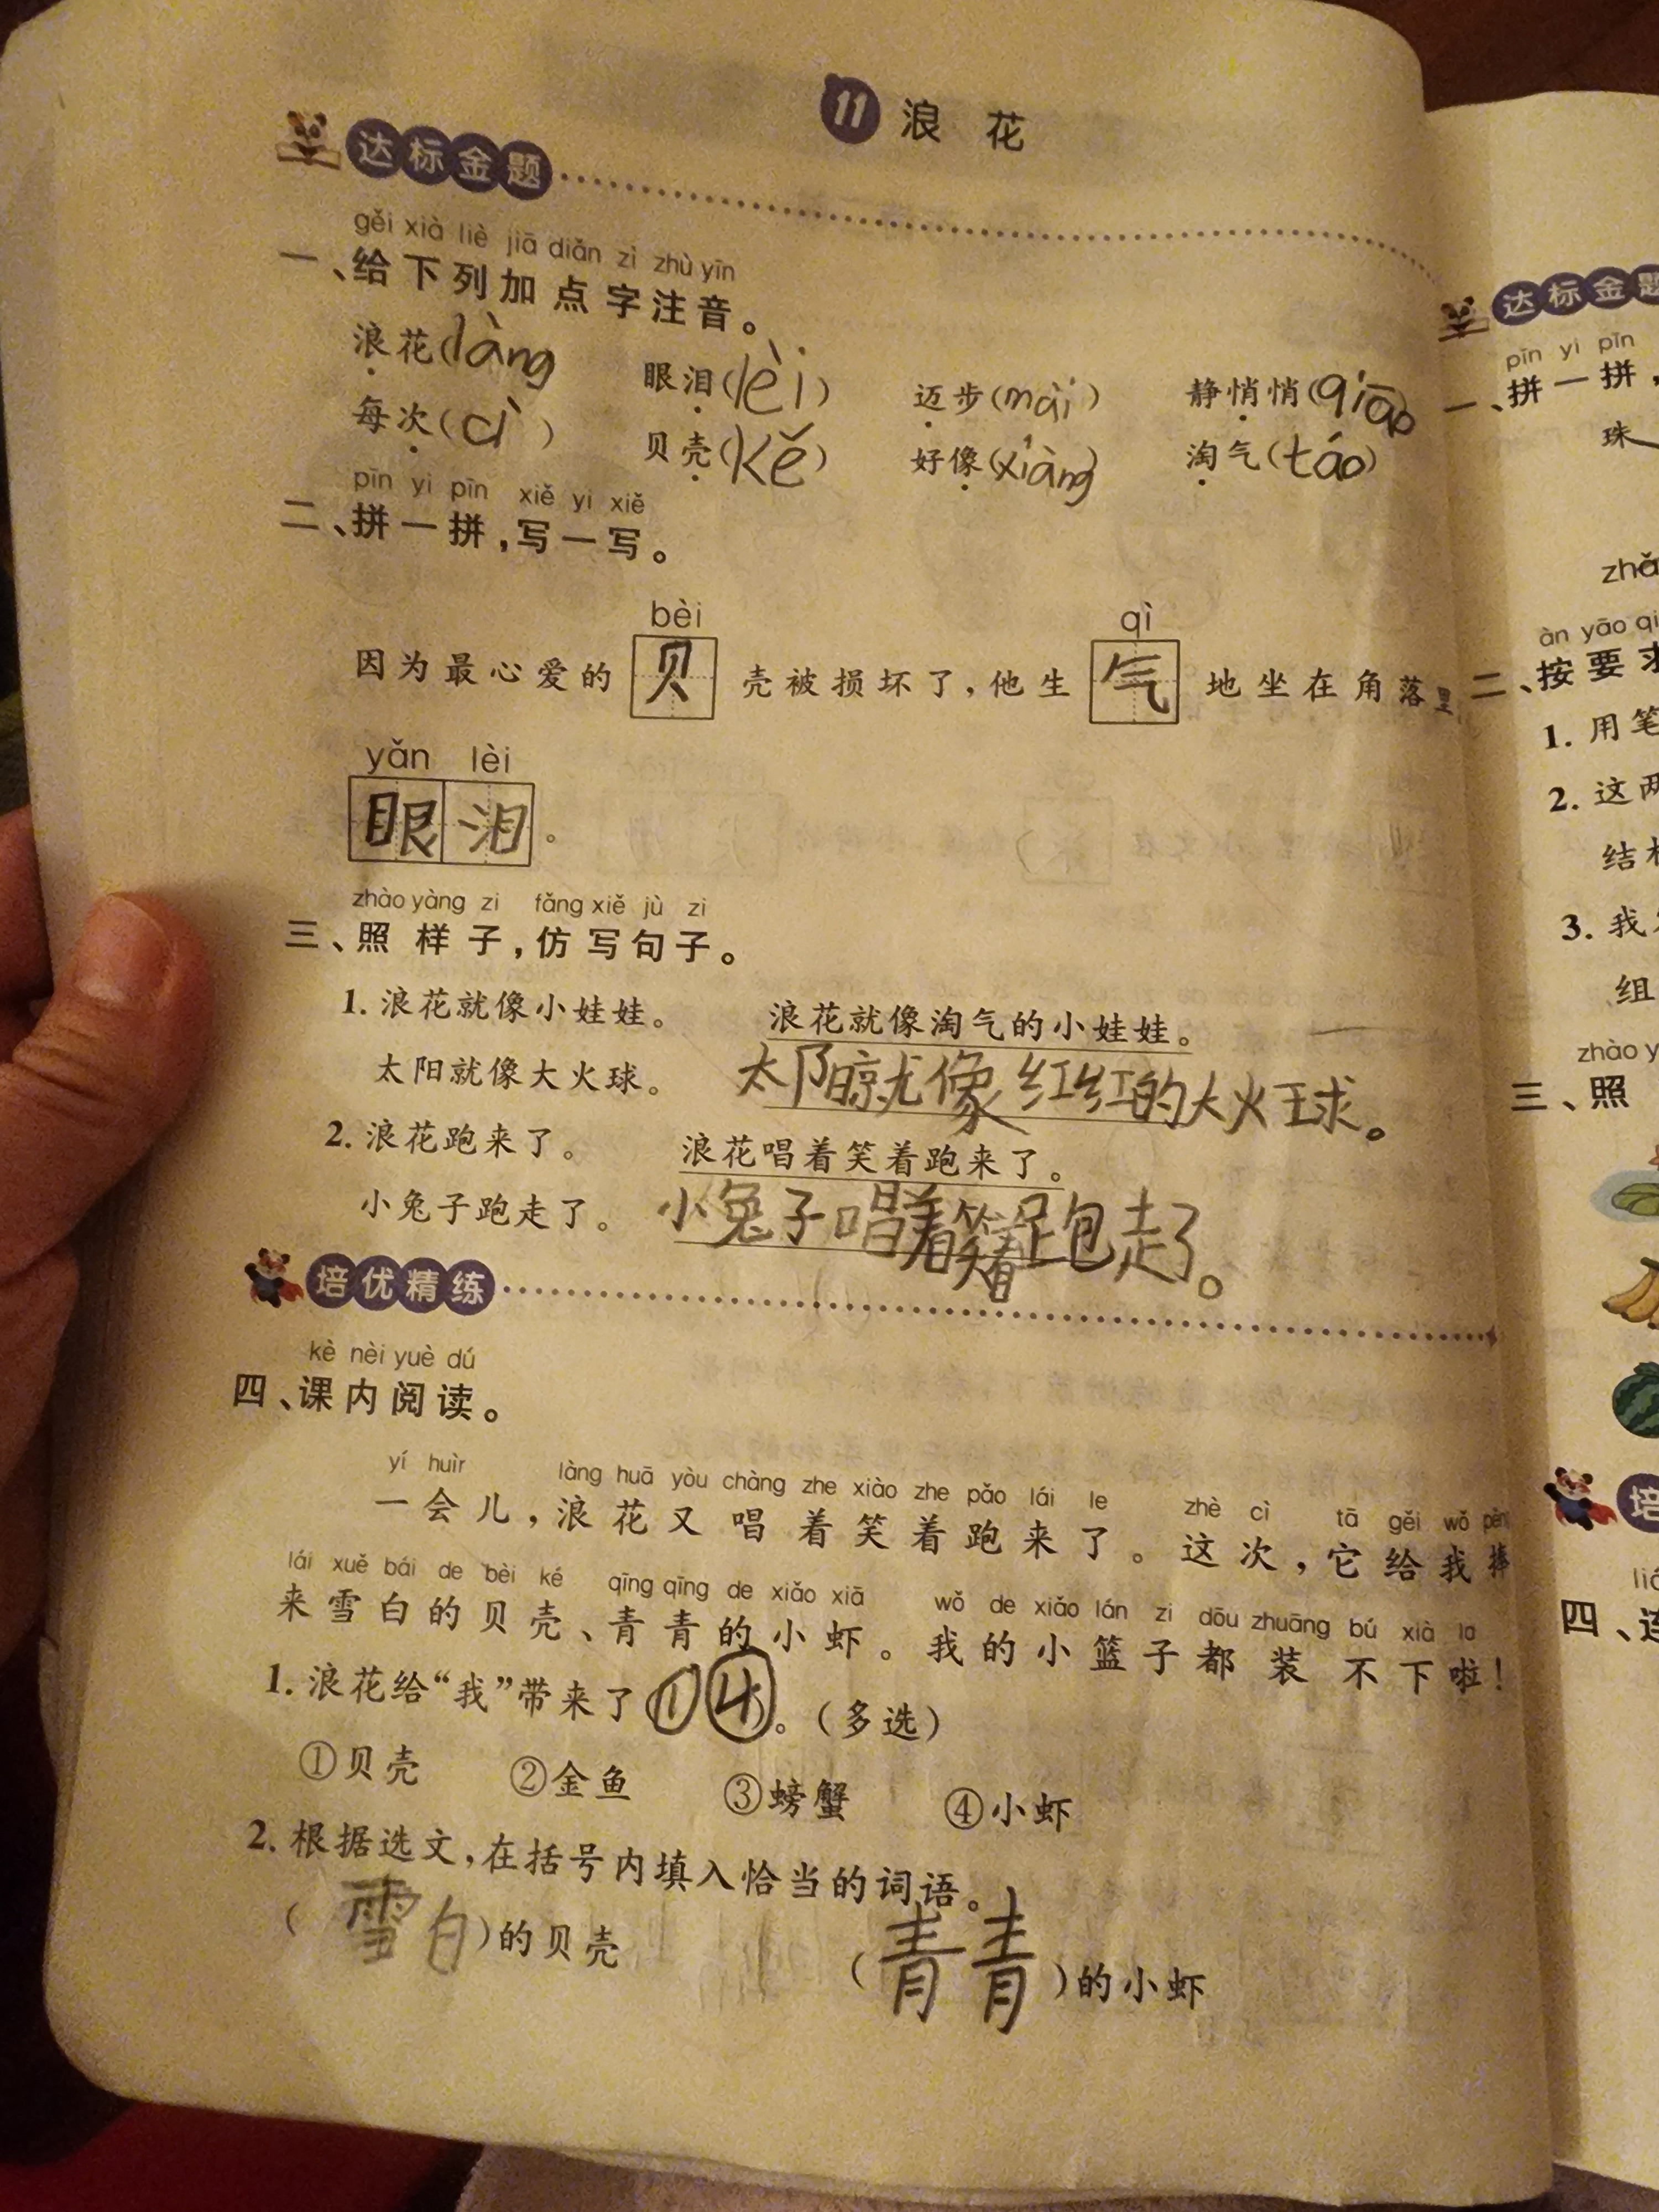 11 浪花
达标金题
gěi xià liè jiā diǎn zì zhù yīn
一、给下列加点字注音。
浪花(làng 眼泪(lèi) 迈步(mài) 静悄悄(qiāo)
每次(cì) 贝壳(kě) 好像(xiàng) 淘气(táo)
pīn yi pīn xiě yi xiě
二、拼一拼,写一写。
bèi qì
因为最心爱的贝壳被损坏了,他生气地坐在角落里
yǎn lèi
眼泪。
zhào yàng zi fǎng xiě jù zi
三、照样子,仿写句子。
1. 浪花就像小娃娃。 浪花就像淘气的小娃娃。
太阳就像大火球。 太阳就像红红的大火球。
2. 浪花跑来了。 浪花唱着笑着跑来了。
小兔子跑走了。 小兔子唱着笑着跑走了。
培优精练
kè nèi yuè dú
四、课内阅读。
yí huìr làng huā yòu chàng zhe xiào zhe pǎo lái le zhè cì tā gěi wǒ pěng
一会儿,浪花又唱着笑着跑来了。这次,它给我捧
lái xuě bái de bèi ké qīng qīng de xiǎo xiā wǒ de xiǎo lán zi dōu zhuāng bú xià la
来雪白的贝壳、青青的小虾。我的小篮子都装不下啦!
1. 浪花给“我”带来了(①④)。(多选)
①贝壳 ②金鱼 ③螃蟹 ④小虾
2. 根据选文,在括号内填入恰当的词语。
(雪白)的贝壳 (青青)的小虾
达标金题
pīn yi pīn
一、拼一拼,
珠
zhǎ
àn yāo qi
二、按要求
1. 用笔
2. 这两
结构
3. 我
组
zhào y
三、照
培
liá
四、连